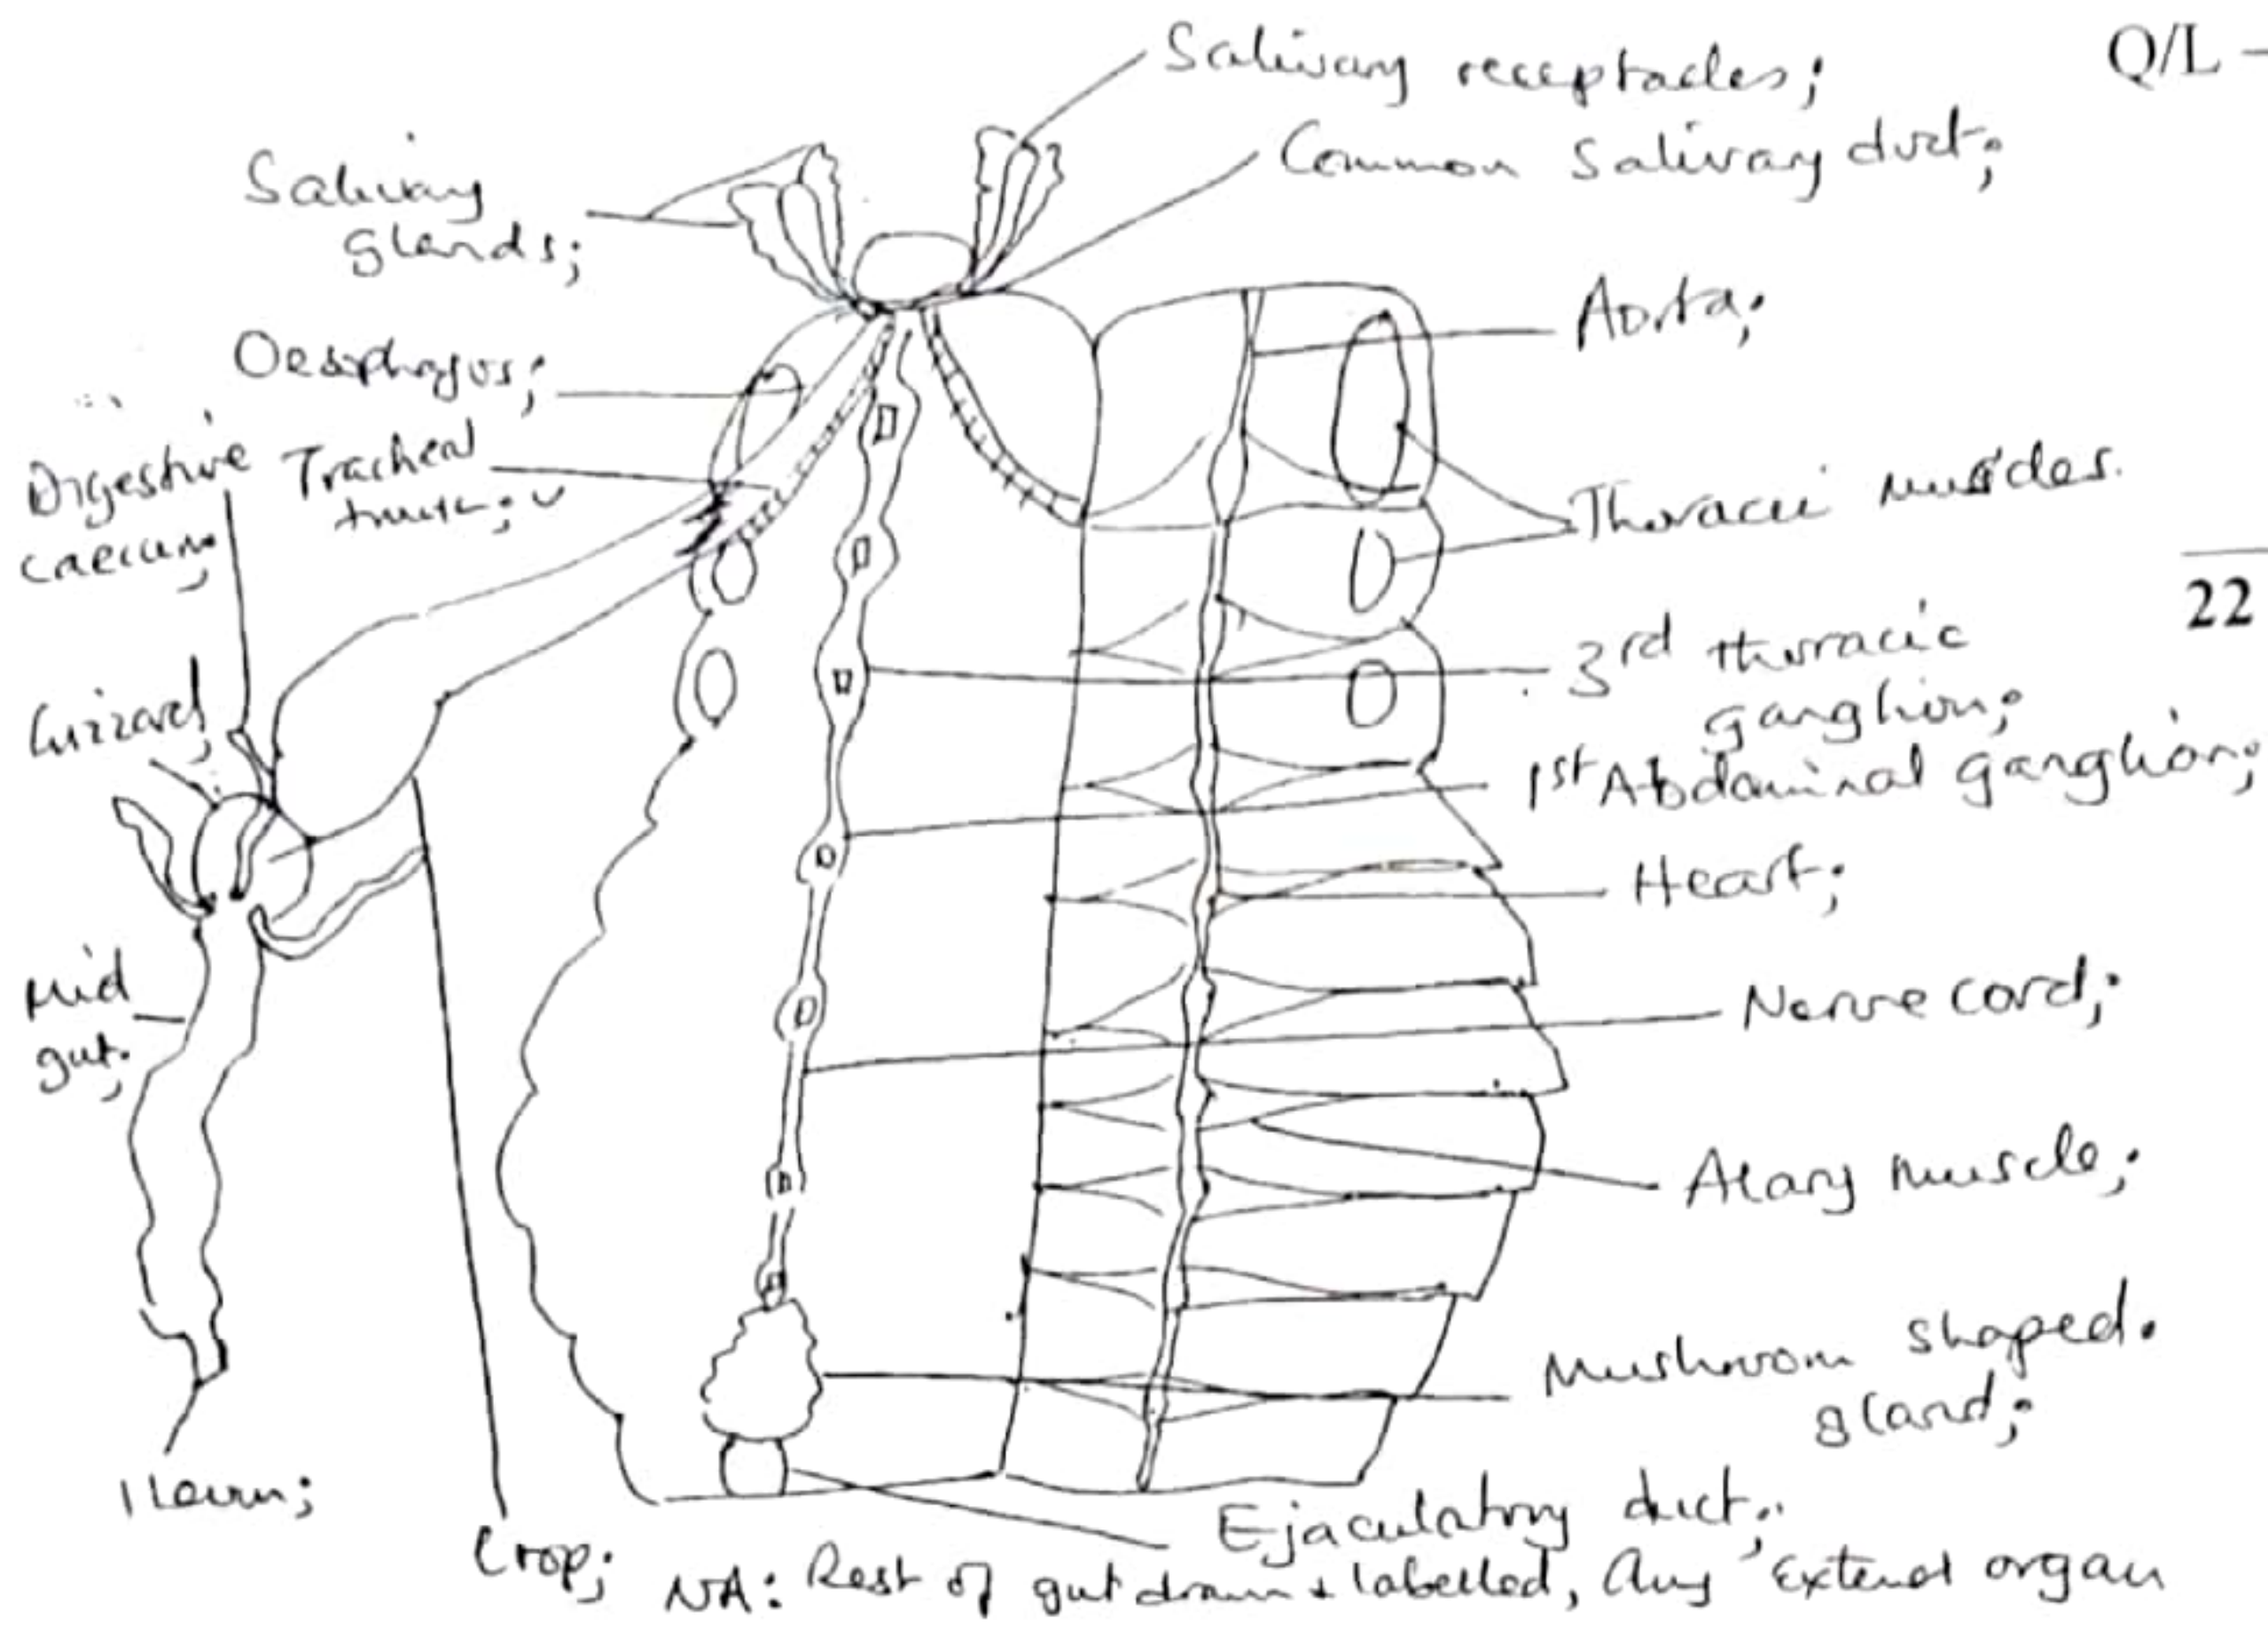 Q/L –
Salivary receptacles;
Common Salivary duct;
Salivary
glands;
Aorta;
Oesophagus;
Digestive
caecum;
Tracheal
trunk;
Thoracic muscles.
22
3rd thoracic
ganglion;
Gizzard;
1st Abdominal ganglion;
Heart;
Mid
gut;
Nerve cord;
Alary muscle;
Mushroom shaped.
gland;
Ileum;
Ejaculatory duct;
Crop;
NA: Rest of gut drawn + labelled, Any extend organ